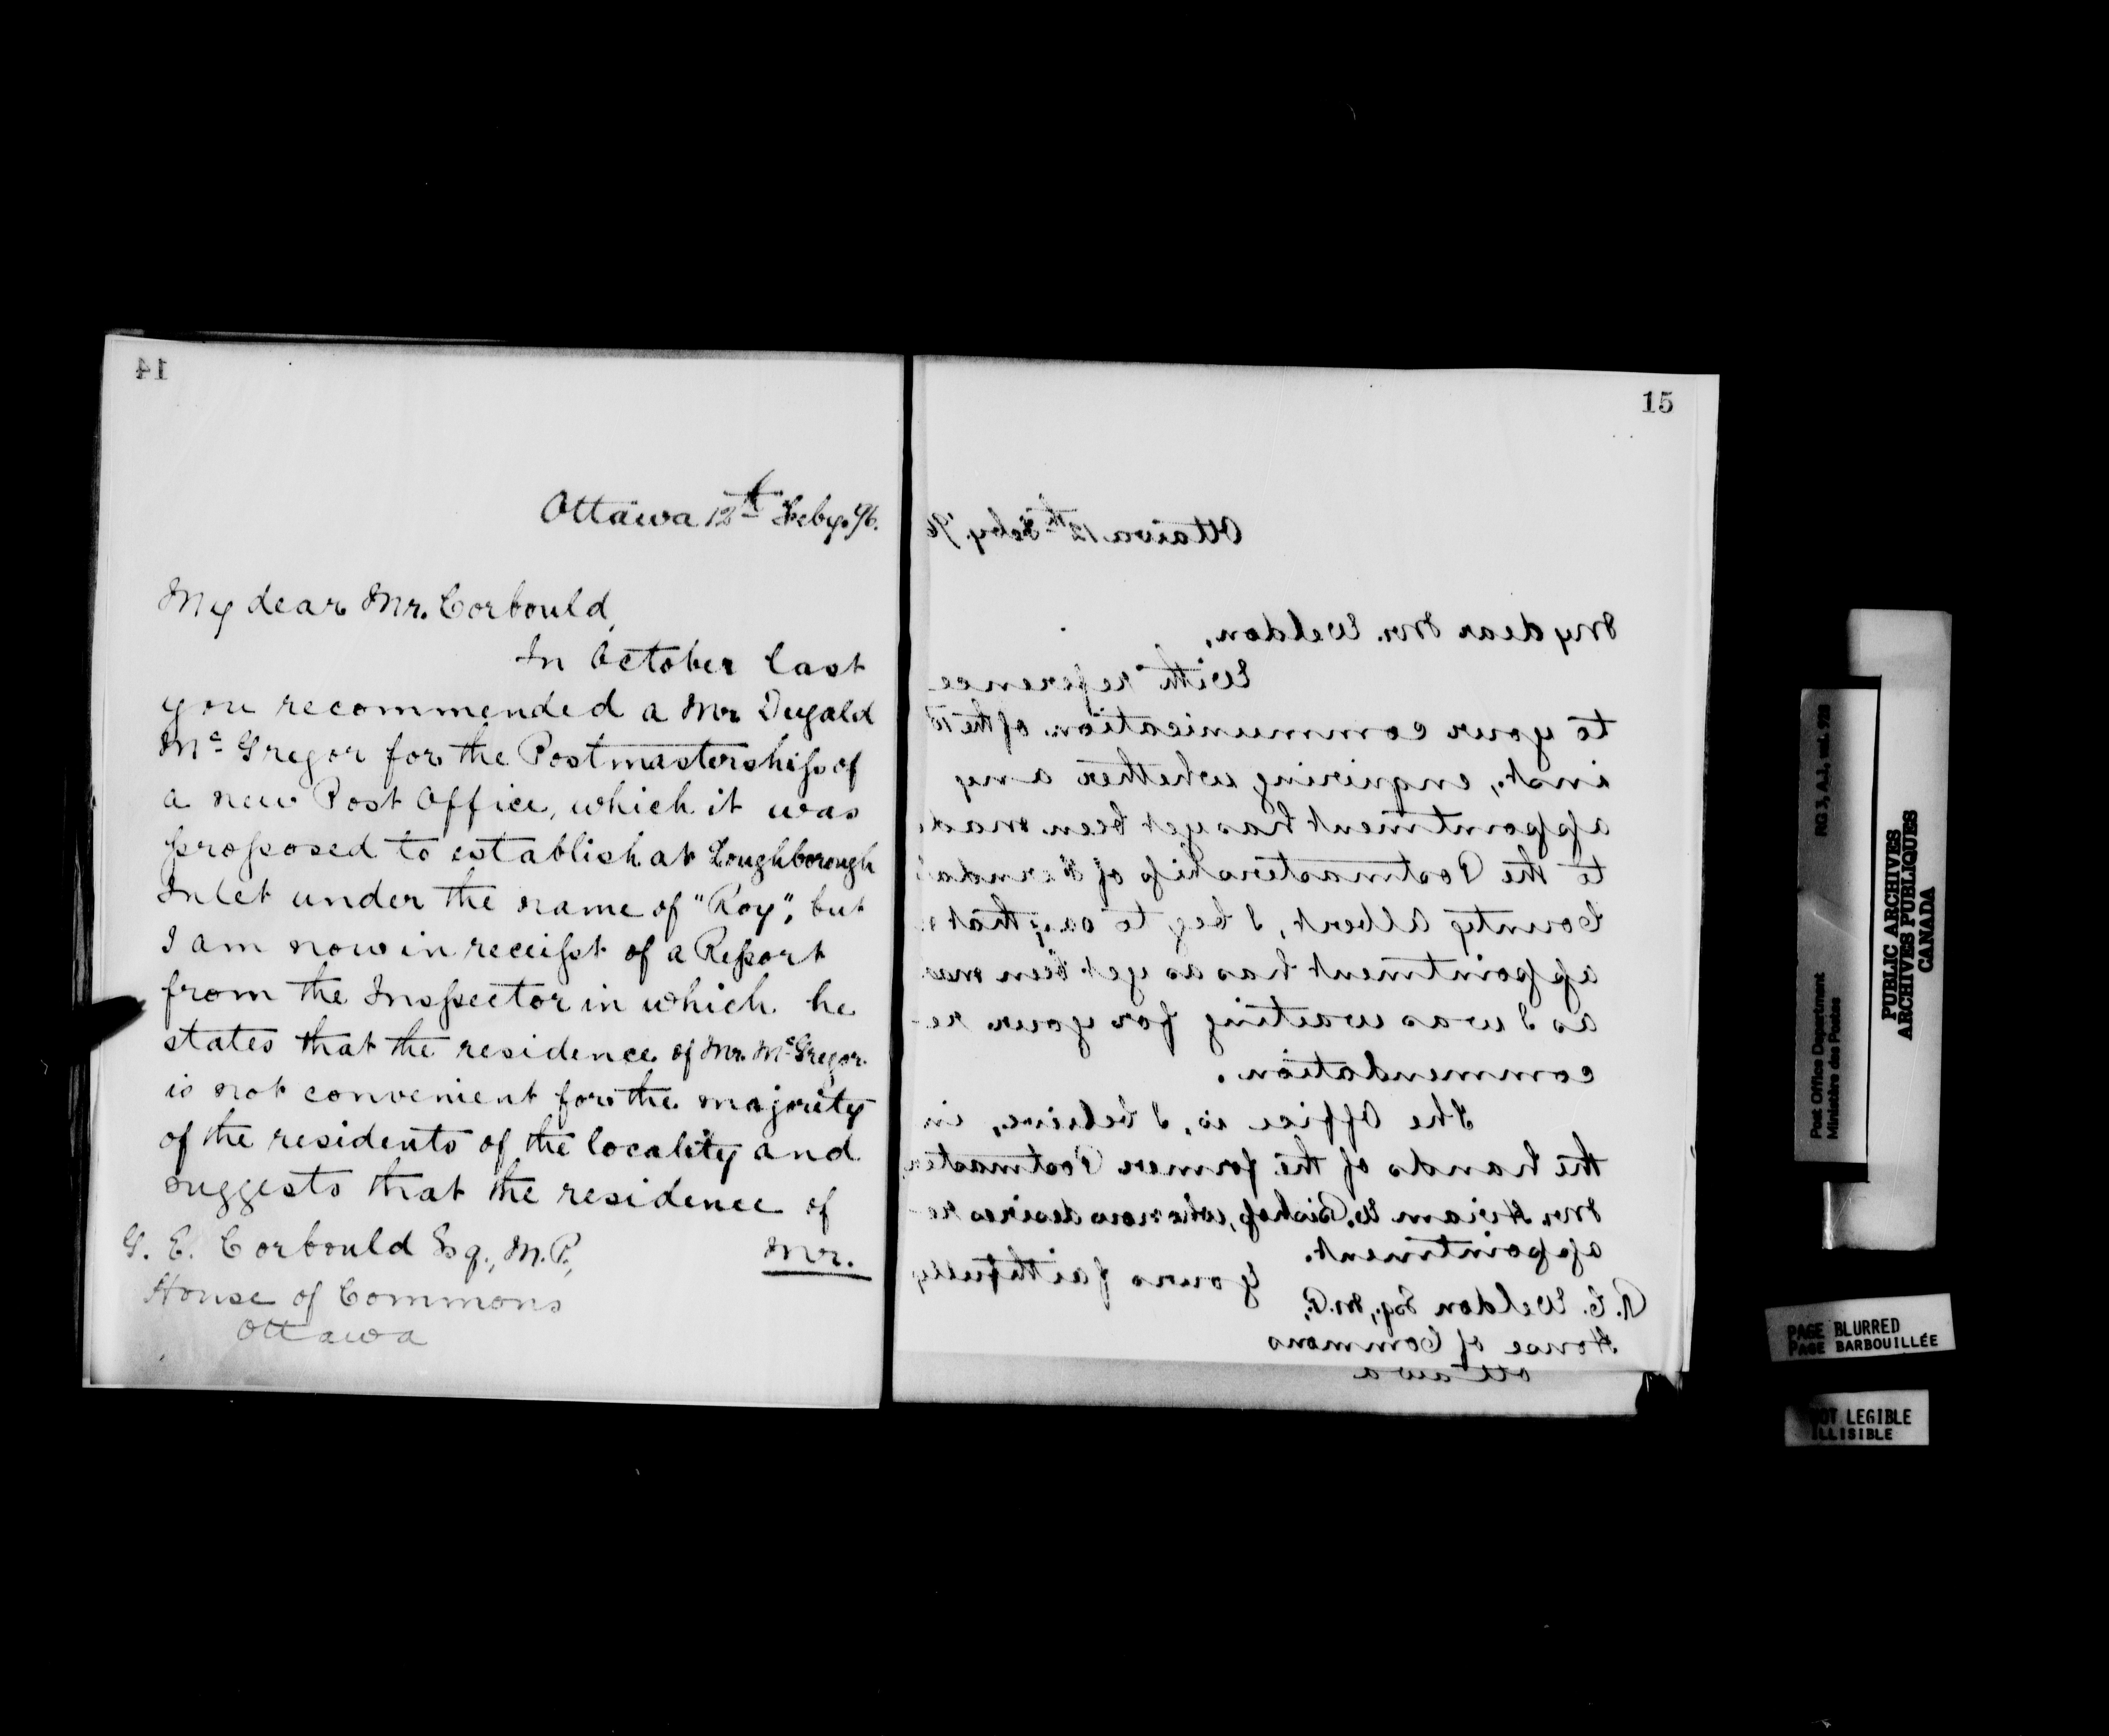 14
Ottawa 12th Feby. 96.
My dear Mr. Corbould,
In October last
you recommended a Mr Dugald
Mc Gregor for the Postmastership of
a new Post Office, which it was
proposed to establish at Loughborough
Inlet under the name of "Roy", but
I am now in receipt of a Report
from the Inspector in which he
states that the residence of Mr. McGregor
is not convenient for the majority
of the residents of the locality and
suggests that the residence of
Mr.
G. E. Corbould Esq., M.P.,
House of Commons
Ottawa
15
Ottawa 12th Feby. '96
My dear Mr. Weldon,
With reference
to your communication of the
inst., enquiring whether any
appointment has yet been mad
to the Postmastership of
County Albert, I beg to say that
appointment has as yet been
as I was waiting for your re-
commendation.
The Office is, I believe, in
the hands of the former Postmaster
Mr. Hiram W. Bishop, who now desires re-
appointment.
Yours faithfully
R. C. Weldon Esq., M.P.,
House of Commons
Ottawa
RG 3, A.1, vol. 928
Post Office Department
Ministère des Postes
PUBLIC ARCHIVES
ARCHIVES PUBLIQUES
CANADA
PAGE BLURRED
PAGE BARBOUILLÉE
NOT LEGIBLE
ILLISIBLE